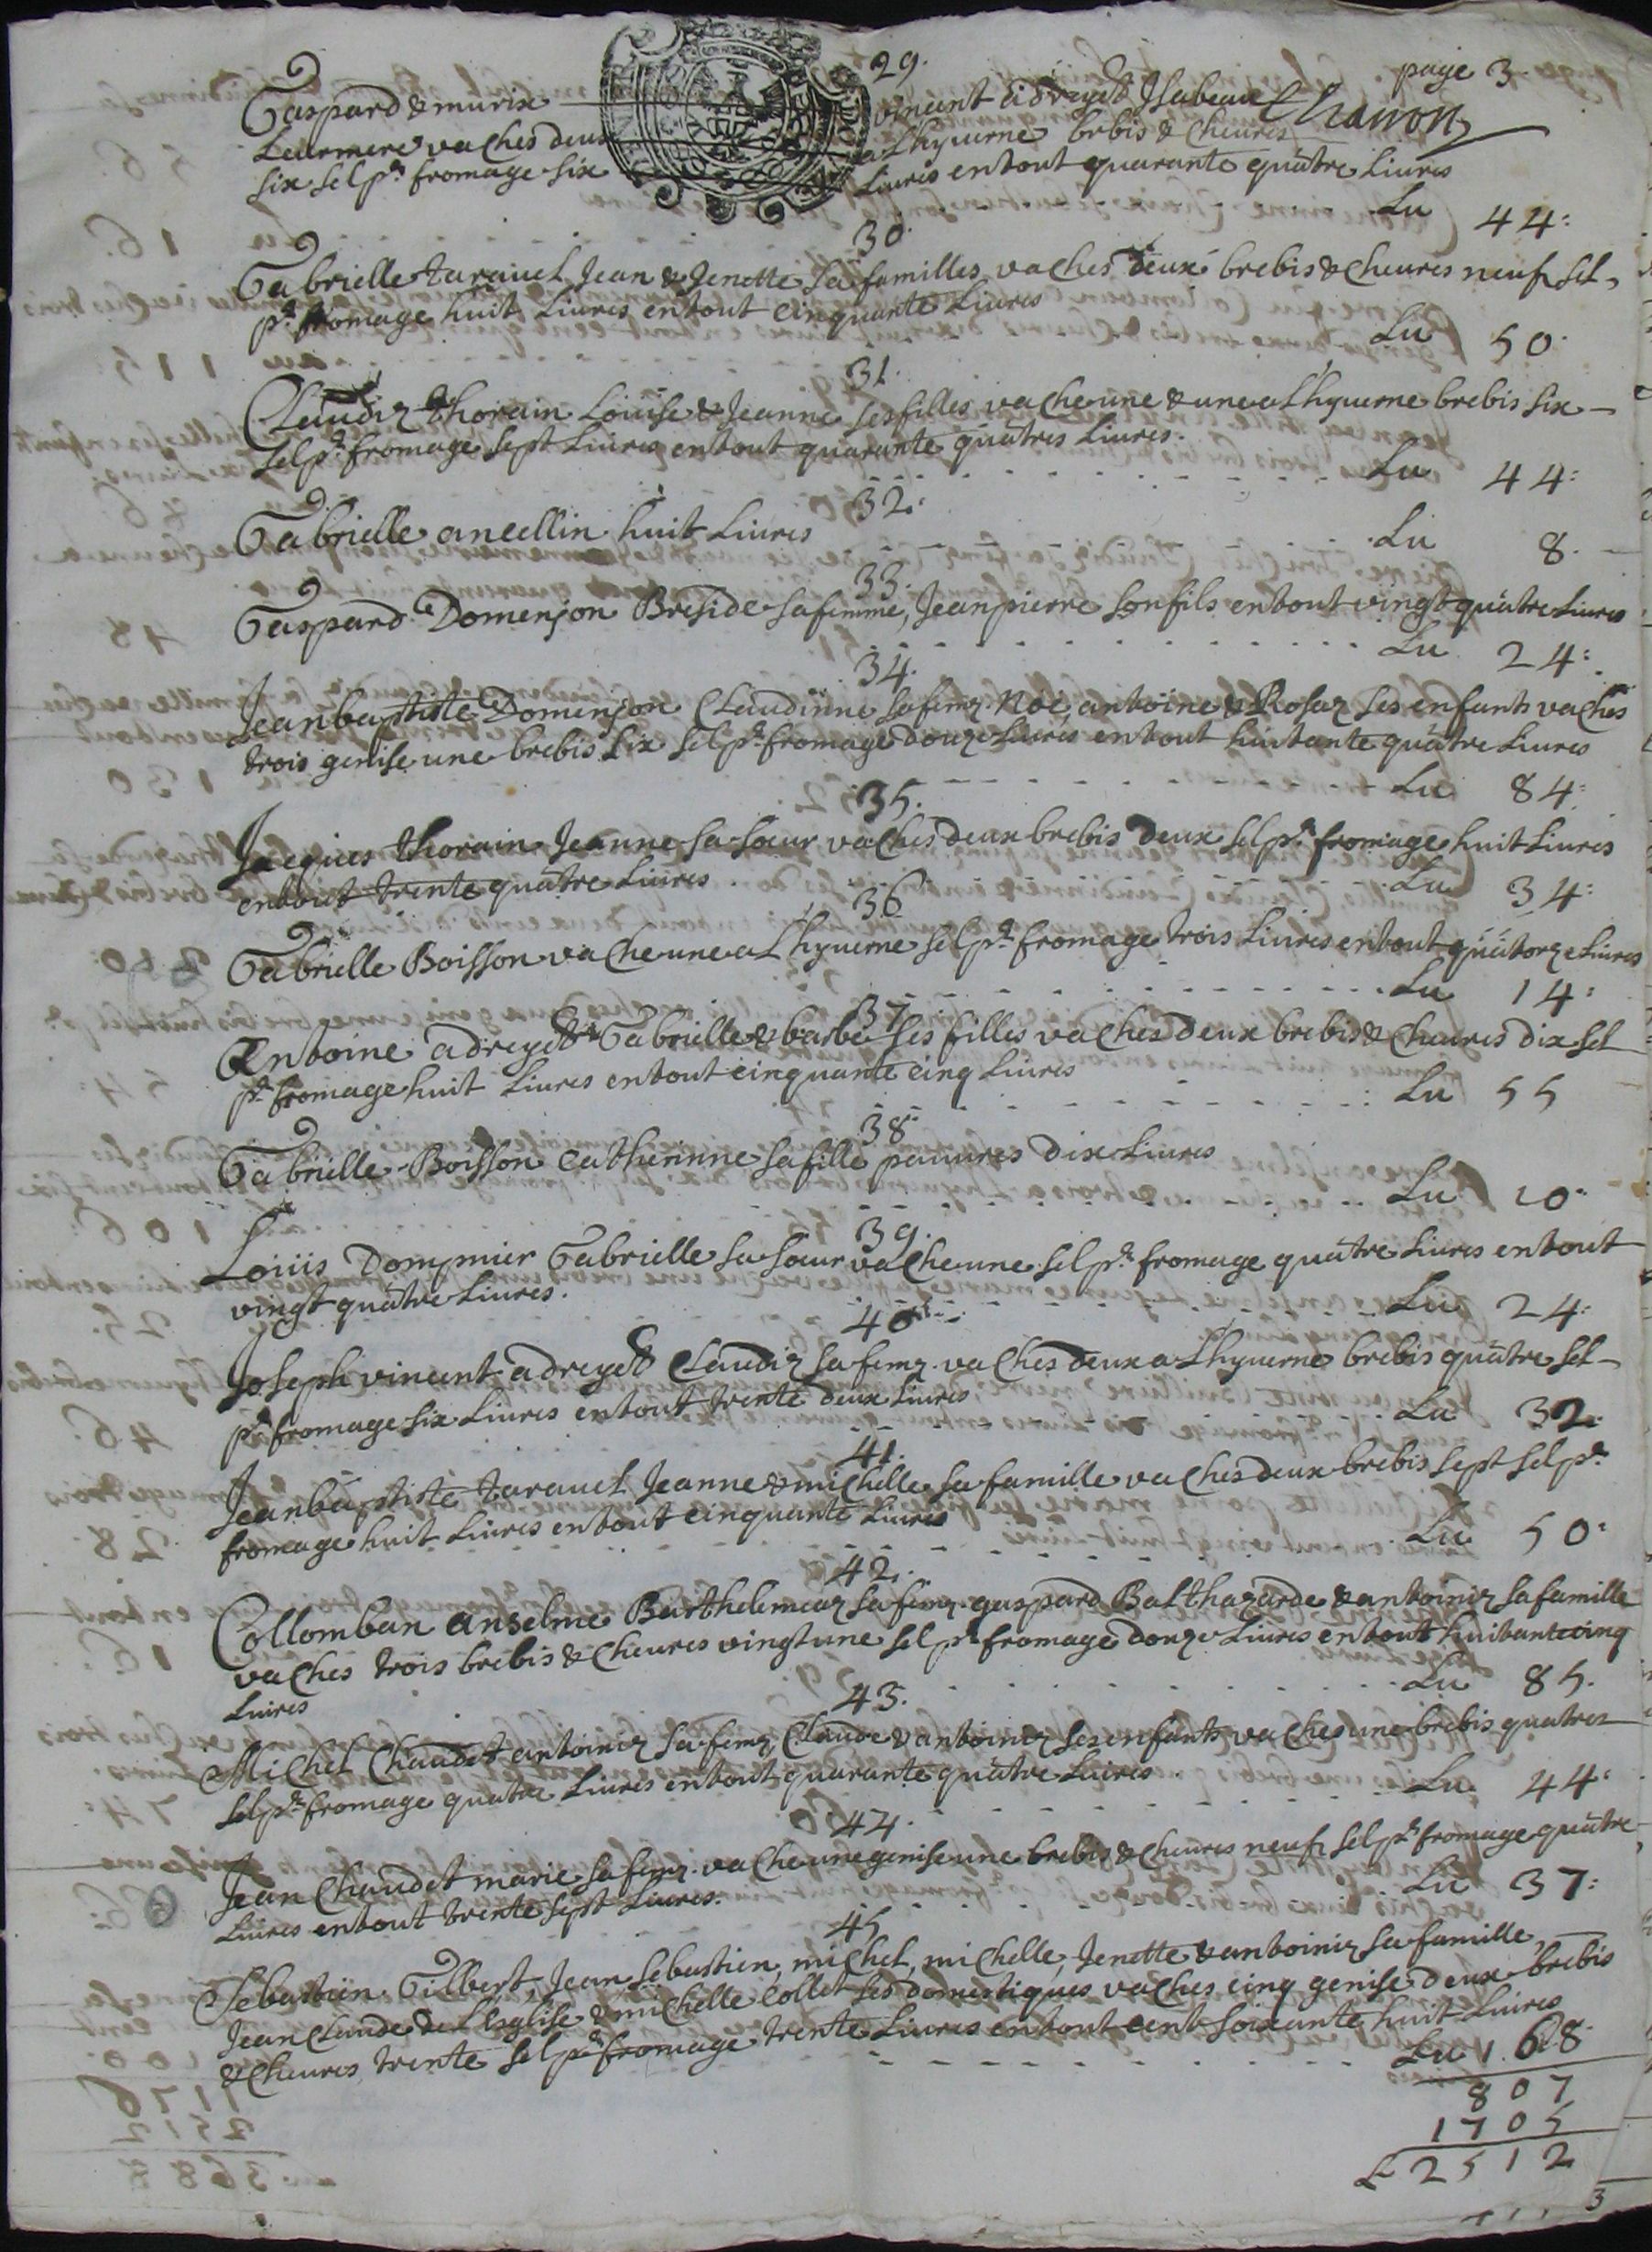 page 3.
29.
Gaspard & marie vincent adreyet Jsabeau Charron
Leurmere vaches deux a Lhyuerne brbis & cheures
six selpr fromage six Liures entout quarante quatre Liures
Lu 44:
30.
Gabrielle taravel Jean & Jenette sa familles vaches deux brebis & cheures neuf sel
pr fromage huit Liures entout cinquante Liures
Lu 50.
31.
Claudiz thorain Louise & Jeanne ses filles vache une & une a Lhyuerne brebis six
selpr fromage sept Liures entout quarante quatres Liures.
Lu 44:
32.
Gabrielle ancellin huit Liures
Lu 8.
33.
Gaspard Domenjon Breside safemme, Jeanpierre sonfils entout vingt quatre Liures
Lu 24:
34.
Jeanbaptiste Domenjon Claudinne safemz Noé, antoine & Rosaz ses enfants vaches
trois genise une brebis six selpr fromage douze Liures entout huitante quatre Liures
Lu 84:
35.
Jacques thorain Jeanne sa soeur vaches deux brebis deux selpr fromage huit Liures
entout trente quatre Liures
Lu 34:
36
Gabrielle Boisson vache une a Lhyuerne selpr fromage trois Liures entout quatorze Liures
Lu 14:
37
Antoine adreyet Gabrielle & barbe ses filles vaches deux brebis & cheures dix sel
pr fromage huit Liures entout cinquante cinq Liures
Lu 55
38.
Gabrielle Boisson Catherinne safille pauures dix Liures
Lu 10.
39.
Loüis Dompnier Gabrielle sa soeur vache une selpr fromage quatre Liures entout
vingt quatre Liures.
Lu 24:
40.
Joseph vincent adreyet Claudiz safemz vaches deux a Lhyuerne brebis quatre sel
pr fromage six Liures entout trente deux Liures
Lu 32.
41.
Jeanbaptiste taravel Jeanne & michelle sa famille vaches deux brebis sept selpr
fromage huit Liures entout cinquante Liures
Lu 50:
42.
Collomban anselme Barthelemiaz safemz gaspard Balthazarde & antoiniz safamille
vaches trois brebis & cheures vingtune selpr fromage douze Liures entout huitante cinq
Liures
Lu 85.
43.
Michel Chaudet antoiniz safemz Claude & antoiniz ses enfants vaches une brebis quatres
selpr fromage quatre Liures entout quarante quatre Liures
Lu 44:
44.
Jean Chaudet marie safemz vache une genise une brebis & cheures neuf selpr fromage quatre
Liures entout trente sept Liures.
Lu 37:
45
Sebastien Gilbert, Jean sebastien, michel, michelle, Jenette & antoiniz sa famille
Jean Claude de L'Esglise & michelle Collet ses domestiques vaches cinq genise deux brebis
& cheures trente selpr fromage trente Liures entout cent soixante huit Liures
Lu 168
807
1705
L 2512
3